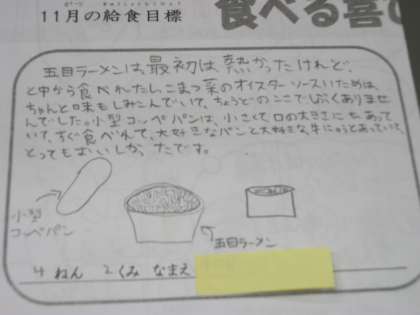 11月の給食目標
食べる喜び
五目ラーメンは、最初は熱かったけれど、
と中から食べれたし、こまつ菜のオイスターソースいためは、
ちゃんと味もしみこんでいて、ちょうどのこさでしぶくありませ
んでした。小型コッペパンは、小さくて、口の大きさにもあって
いて、すぐ食べれて、大好きなパンと大好きな牛にゅうとあっていて、
とってもおいしかったです。
小型
コッペパン
五目ラーメン
4 ねん 2くみ なまえ